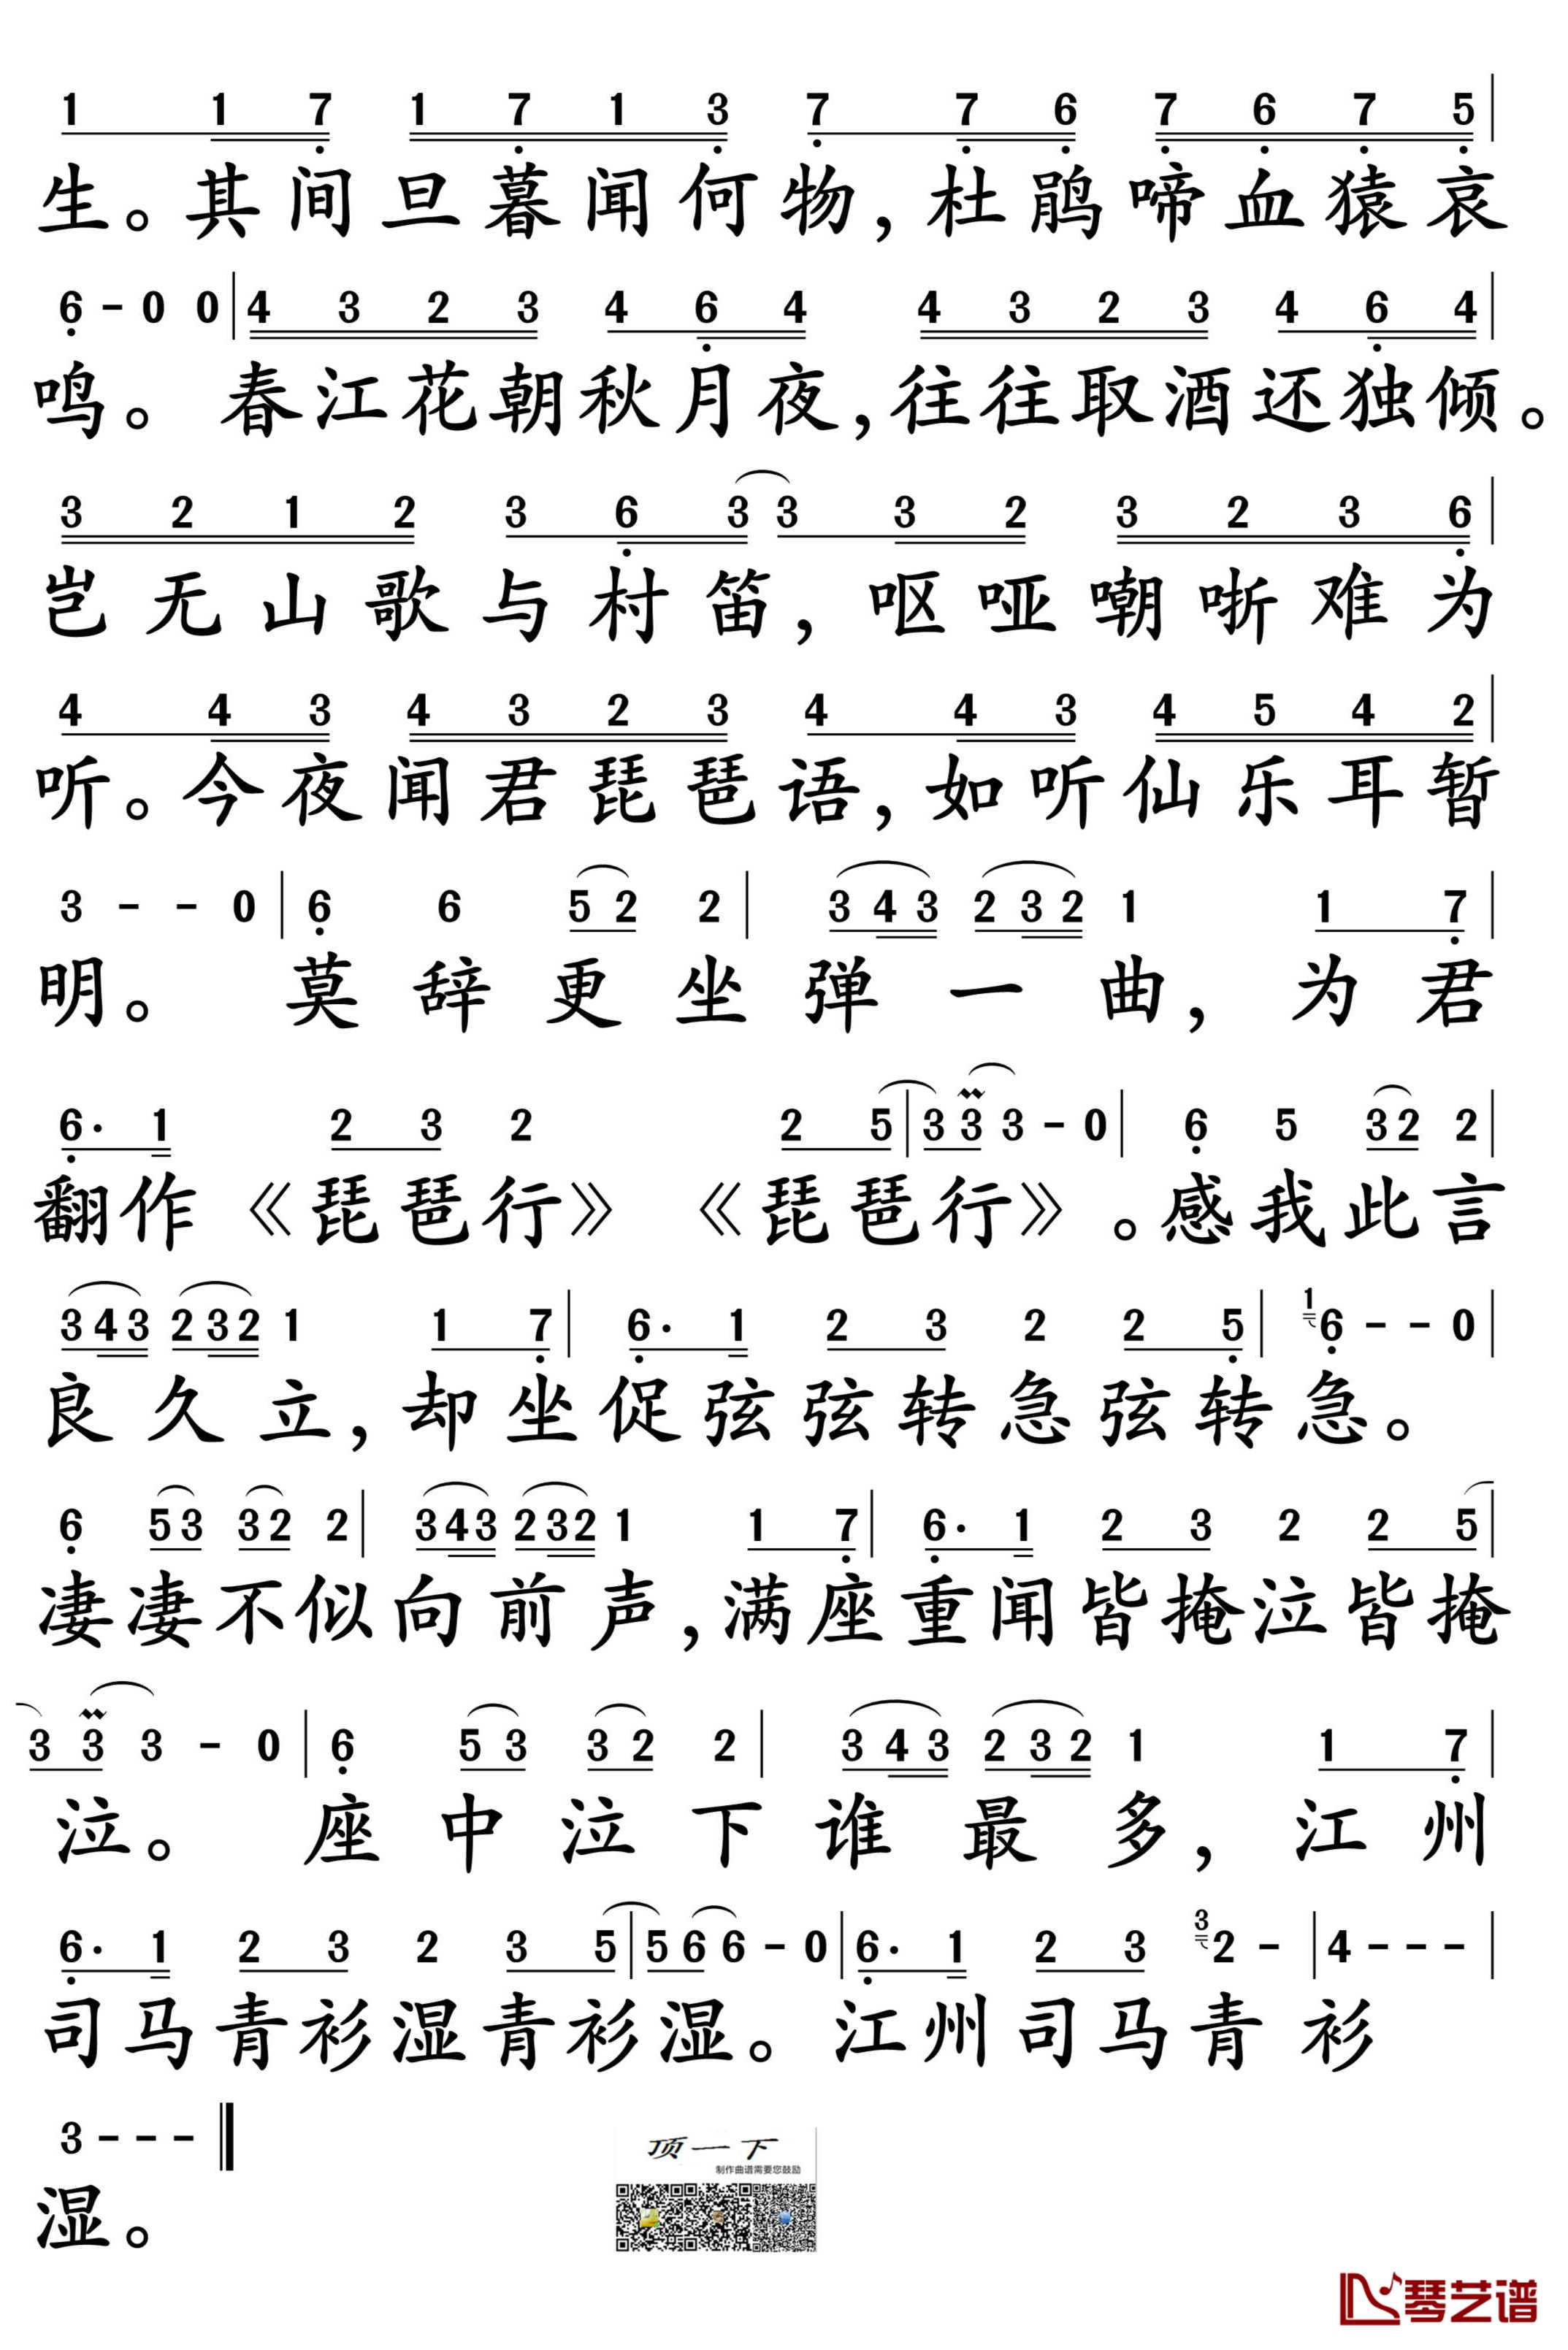 1 1 7 1 7 1 3 7 7 6 7 6 7 5
生。其间旦暮闻何物，杜鹃啼血猿哀
6 - 0 0 4 3 2 3 4 6 4 4 3 2 3 4 6 4
鸣。春江花朝秋月夜，往往取酒还独倾。
3 2 1 2 3 6 3 3 3 2 3 2 3 6
岂无山歌与村笛，呕哑嘲哳难为
4 4 3 4 3 2 3 4 4 3 4 5 4 2
听。今夜闻君琵琶语，如听仙乐耳暂
3 - - 0 6 6 5 2 2 3 4 3 2 3 2 1 1 7
明。莫辞更坐弹一曲，为君
6· 1 2 3 2 2 5 3 3 3 - 0 6 5 3 2 2
翻作《琵琶行》《琵琶行》。感我此言
3 4 3 2 3 2 1 1 7 6· 1 2 3 2 2 5 1 6 - - 0
良久立，却坐促弦弦转急弦转急。
6 5 3 3 2 2 3 4 3 2 3 2 1 1 7 6· 1 2 3 2 2 5
凄凄不似向前声，满座重闻皆掩泣皆掩
3 3 3 - 0 6 5 3 3 2 2 3 4 3 2 3 2 1 1 7
泣。座中泣下谁最多，江州
6· 1 2 3 2 3 5 5 6 6 - 0 6· 1 2 3 3 2 - 4 - - -
司马青衫湿青衫湿。江州司马青衫
3 - - -
湿。
顶一下
制作曲谱需要您鼓励
琴艺谱